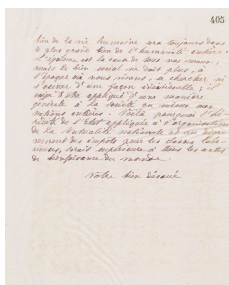 405
bien de la vie humaine sera toujours dans
le plus grand bien de l'humanité entière.
L'égoïsme est la cause de tous nos maux,
mais le bien social ne doit plus, à
l'époque où nous vivons, se chercher ni
s'exercer d'une façon individuelle; il
exige d'être appliqué d'une manière
générale à la société ou même aux
nations entières. Voilà pourquoi l'hé
de l'Etat appliquée à l'organisation
de la Mutualité nationale et au dégrè
vement des impôts pour les classes labo
rieuses, serait supérieure à tous les actes
de bienfaisance du monde.
Votre bien Dévoué